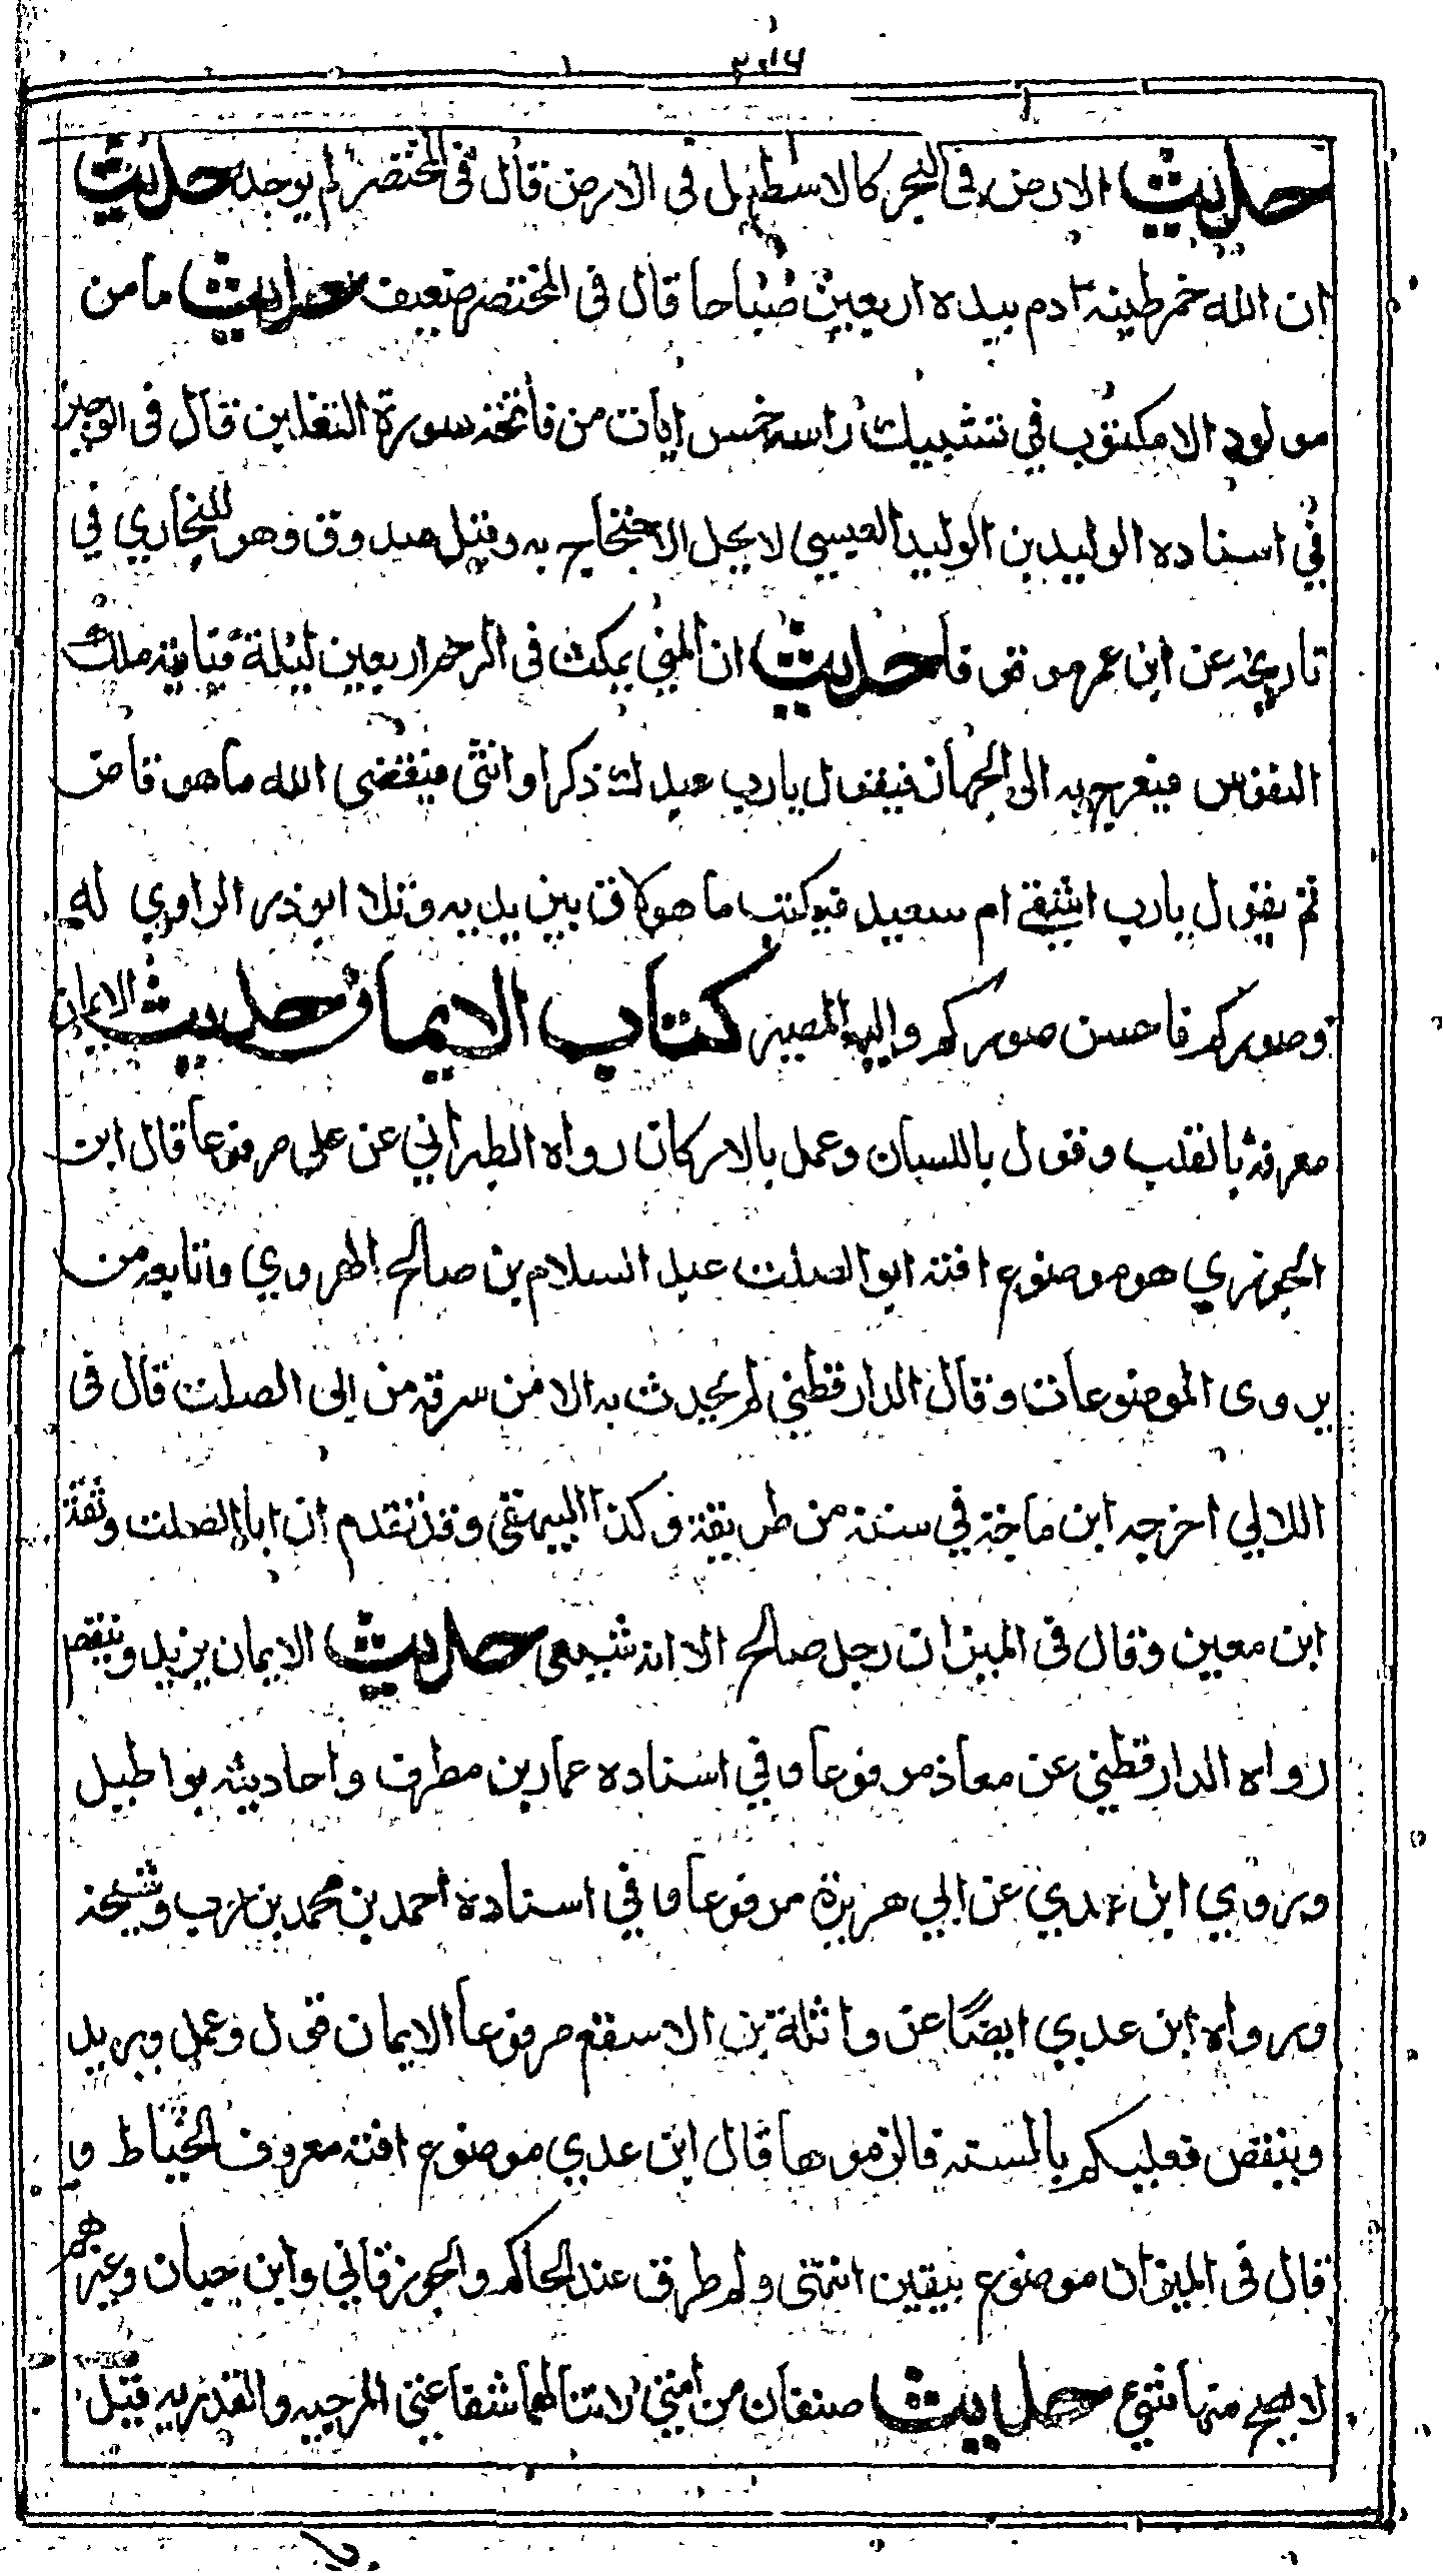 ٢٠١٤
حديث الارض في البحر كالاسطبل في الارض قال في المختصر لم يوجد حديث
ان الله خمر طينة ادم بيده اربعين صباحا قال في المختصر ضعيف حديث ما من
مولود الا مكتوب في تشبيك راسه خمس ايات من فاتحة سورة التغابن قال في الوجيز
في اسناده الوليد بن الوليد العيسي لا يحل الاحتجاج به وقيل صدوق وهو للبخاري في
تاريخه عن ابن عمر موقوفا حديث ان المني يمكث في الرحم اربعين ليلة فياتيه ملك
النفوس فيعرج به الى الجبار فيقول يارب عبدك ذكر او انثى فيقضي الله ما هو قاض
ثم يقول يارب اشقي ام سعيد فيكتب ما هو لاق بين يديه وتلا ابو ذر الراوي له
وصوركم فاحسن صوركم واليه المصير كتاب الايمان حديث الايمان
معرفة بالقلب وقول باللسان وعمل بالاركان رواه الطبراني عن علي مرفوعا قال ابن
الجوزي هو موضوع افته ابو الصلت عبد السلام بن صالح الهروي وتابعه من
يروى الموضوعات وقال الدارقطني لم يحدث به الا من سرقه من ابي الصلت قال في
اللالي اخرجه ابن ماجة في سننه من طريقه وكذا البيهقي وقد تقدم ان ابا الصلت وثقه
ابن معين وقال في الميزان رجل صالح الا انه شيعي حديث الايمان يزيد وينقص
رواه الدارقطني عن معاذ مرفوعا وفي اسناده عمار بن مطرف واحاديثه بواطيل
ويروي ابن عدي عن ابي هريرة مرفوعا وفي اسناده احمد بن محمد بن حرب وشيخه
ورواه ابن عدي ايضًا عن واثلة بن الاسقع مرفوعا الايمان قول وعمل ويزيد
وينقص فعليكم بالسنة فالزموها قال ابن عدي موضوع افته معروف الخياط و
قال في الميزان موضوع بيقين انتهى وله طرق عند الحاكم والجوزقاني وابن حبان وغيرهم
لا يصح منها شئ حديث صنفان من امتي لا تنالهما شفاعتي المرجيه والقدريه قيل